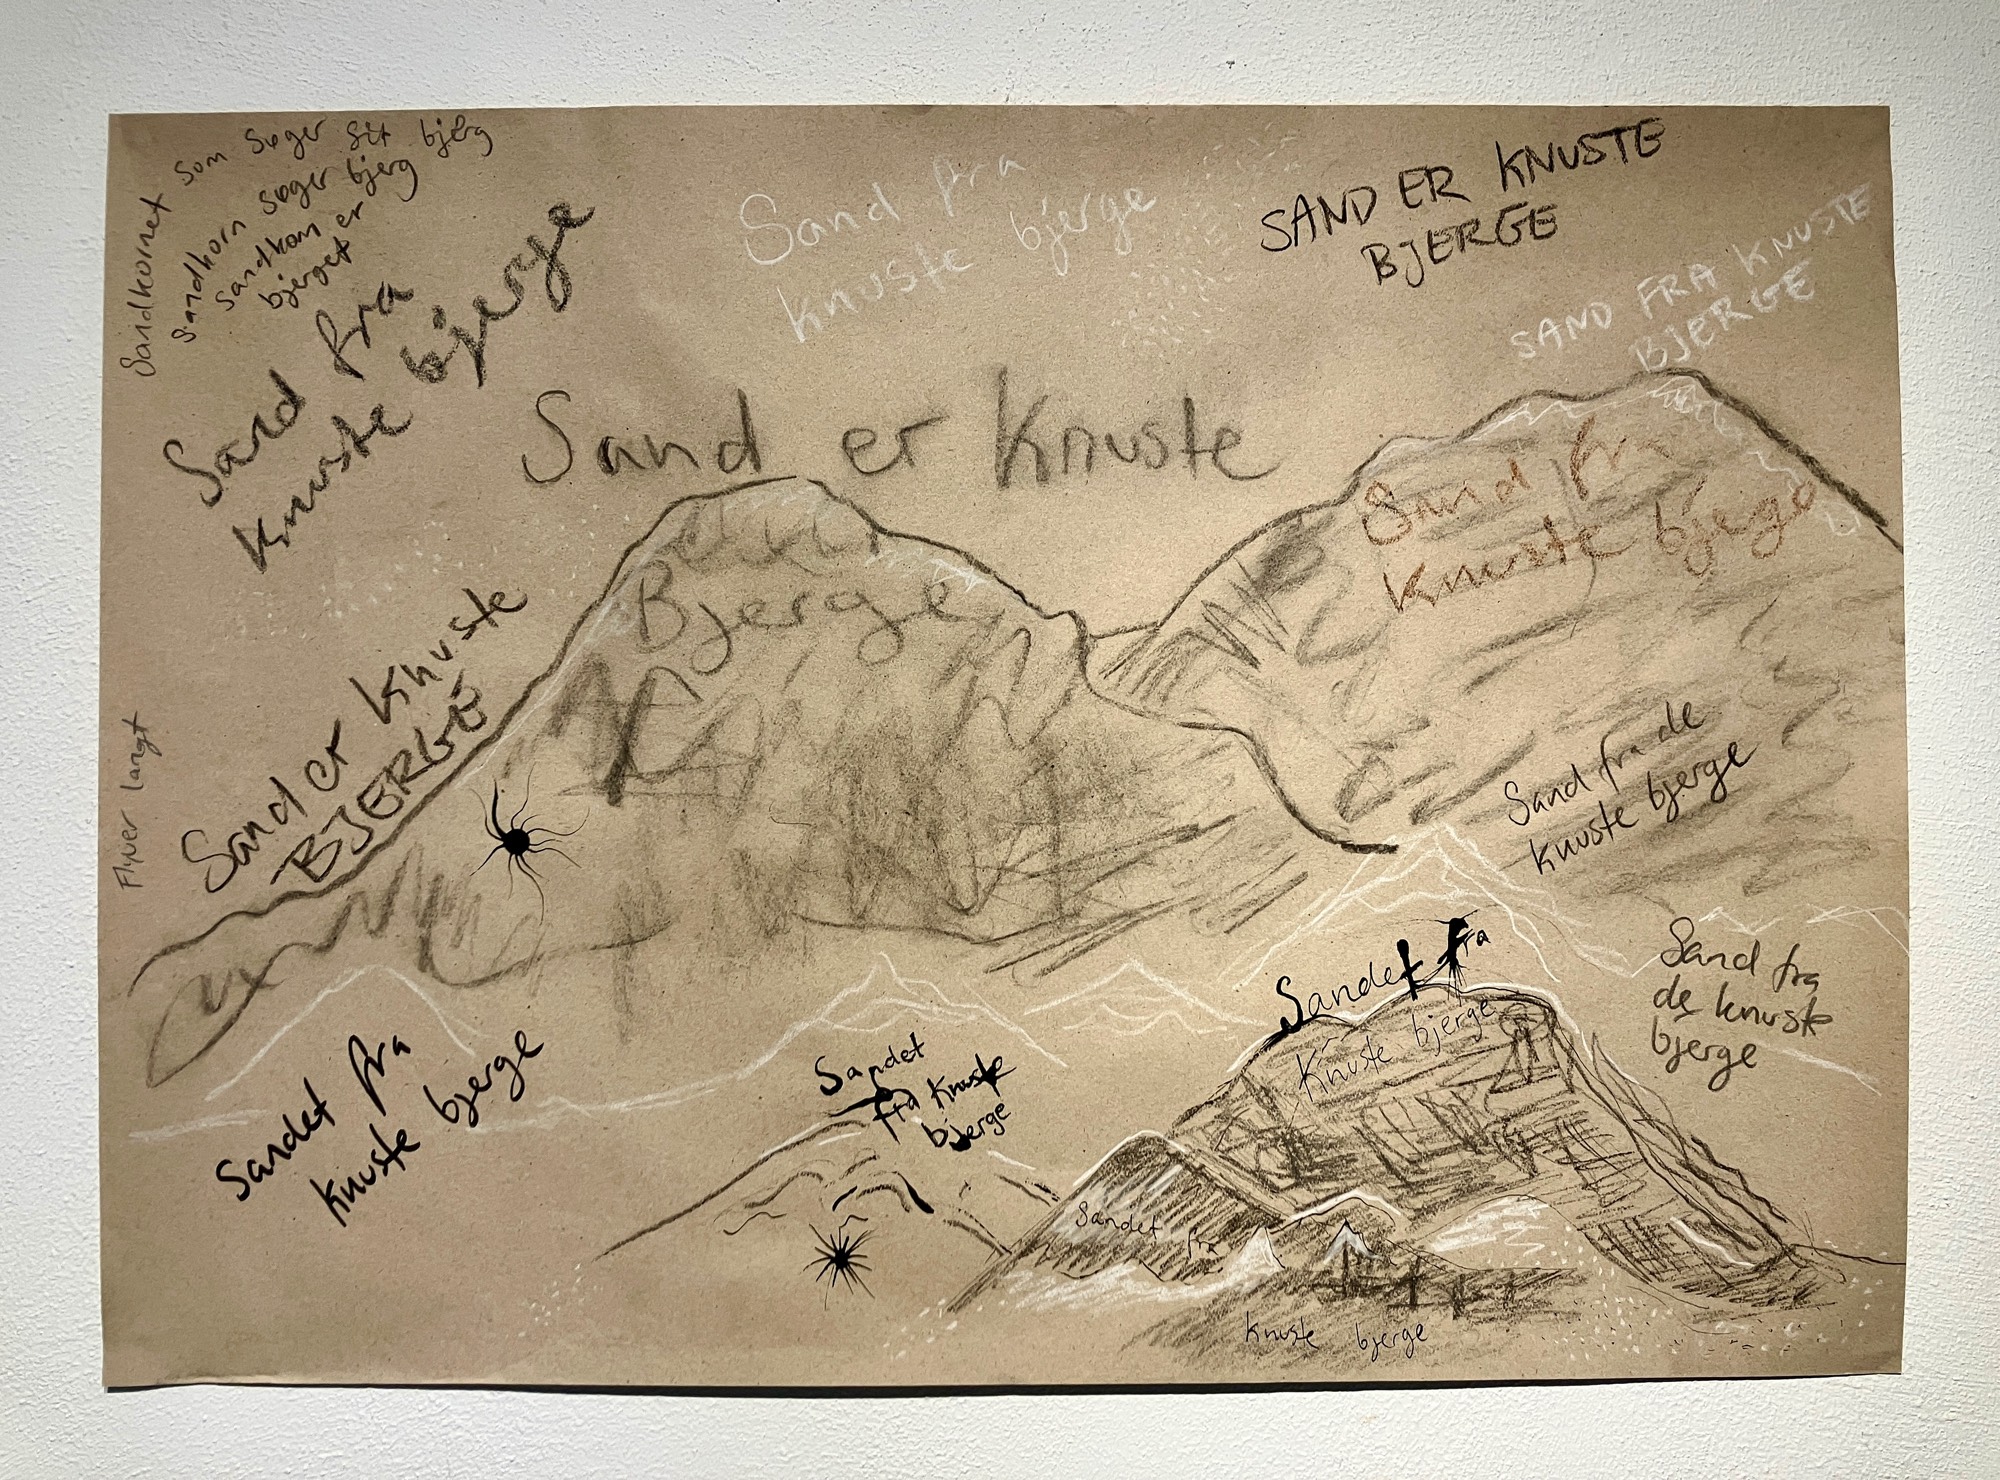 Sandkornet som søger sit bjerg
Sandkorn søger bjerg
Sandkorn er
bjerget
Sand fra
knuste bjerge
Sand fra
knuste bjerge
SAND ER KNUSTE
BJERGE
SAND FRA KNUSTE
BJERGE
Sand er Knuste
Bjerge
Sand fra
knuste bjerge
Sand er Knuste
BJERGE
Flyver langt
Sand fra de
knuste bjerge
Sand fra
de knuste
bjerge
Sandet fra
Knuste bjerge
Sandet
fra knuste
bjerge
Sandet fra
knuste bjerge
Sandet fra
knuste bjerge